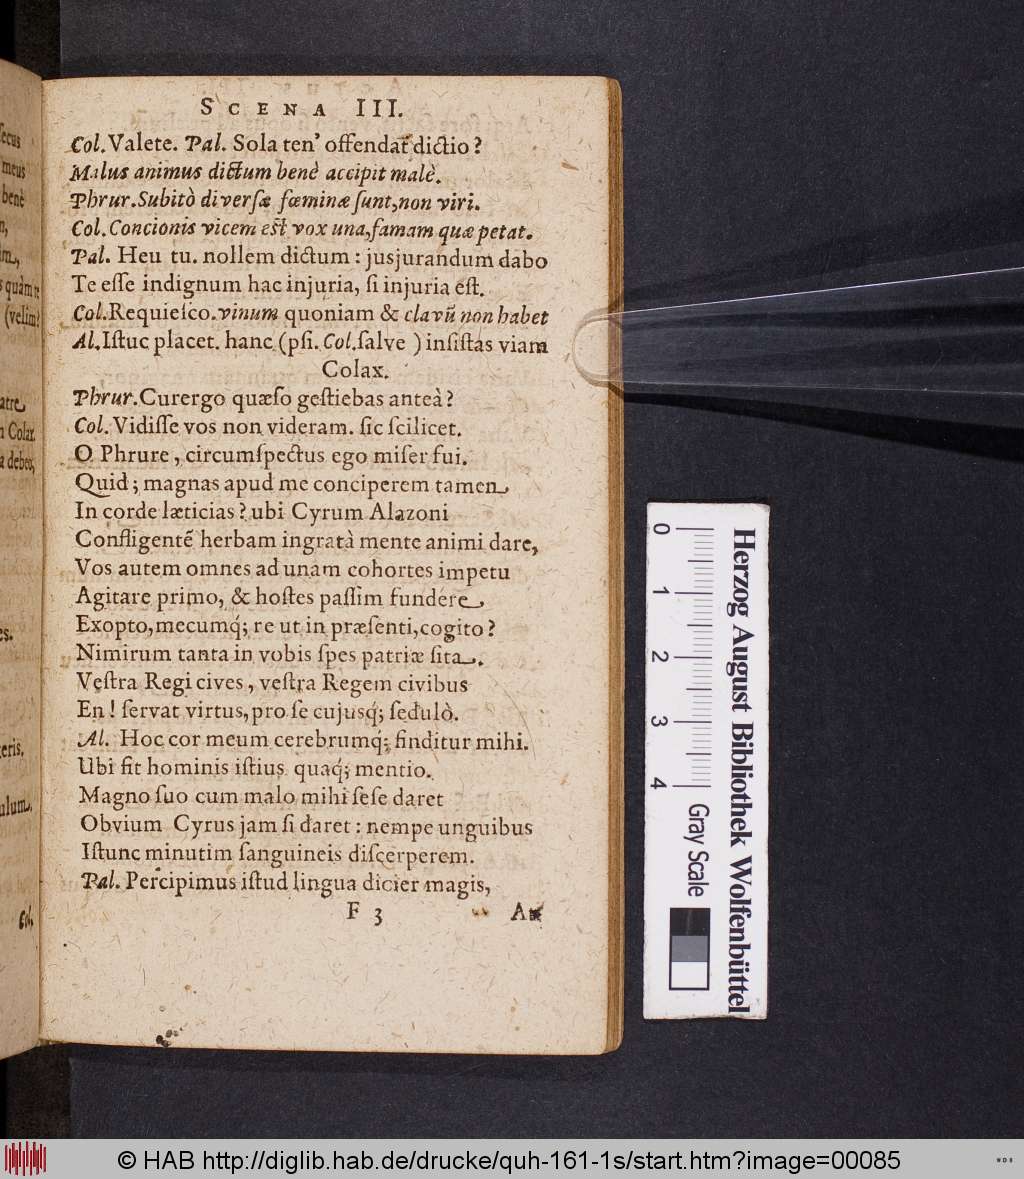 ſecus
meus
benè
n,
im,
s quàm te
(velim?
atre
n Colax.
a debeo,
es.
eris.
ulum,
Col.
SCENA III.
Col. Valete. Pal. Sola ten' offendat dictio?
Malus animus dictum benè accipit malè.
Phrur. Subitò diverſæ fœminæ ſunt, non viri.
Col. Concionis vicem eſt vox una, famam quæ petat.
Pal. Heu tu. nollem dictum: jusjurandum dabo
Te eſſe indignum hac injuria, ſi injuria eſt.
Col. Requieſco. vinum quoniam & clavū non habet
Al. Iſtuc placet. hanc (pſi. Col. ſalve ) inſiſtas viam
Colax.
Phrur. Curergo quæſo geſtiebas anteà?
Col. Vidiſſe vos non videram. ſic ſcilicet.
O Phrure, circumſpectus ego miſer fui.
Quid; magnas apud me conciperem tamen
In corde læticias? ubi Cyrum Alazoni
Confligentē herbam ingratà mente animi dare,
Vos autem omnes ad unam cohortes impetu
Agitare primo, & hoſtes paſſim fundere,
Exopto, mecumq́; re ut in præſenti, cogito?
Nimirum tanta in vobis ſpes patriæ ſita.
Veſtra Regi cives, veſtra Regem civibus
En! ſervat virtus, pro ſe cujusq́; ſedulò.
Al. Hoc cor meum cerebrumq́; finditur mihi.
Ubi fit hominis iſtius quaq́; mentio.
Magno ſuo cum malo mihi ſeſe daret
Obvium Cyrus jam ſi daret: nempe unguibus
Iſtunc minutim ſanguineis diſcerperem.
Pal. Percipimus iſtud lingua dicier magis,
F 3
0 1 2 3 4
Gray Scale
Herzog August Bibliothek Wolfenbüttel
© HAB http://diglib.hab.de/drucke/quh-161-1s/start.htm?image=00085